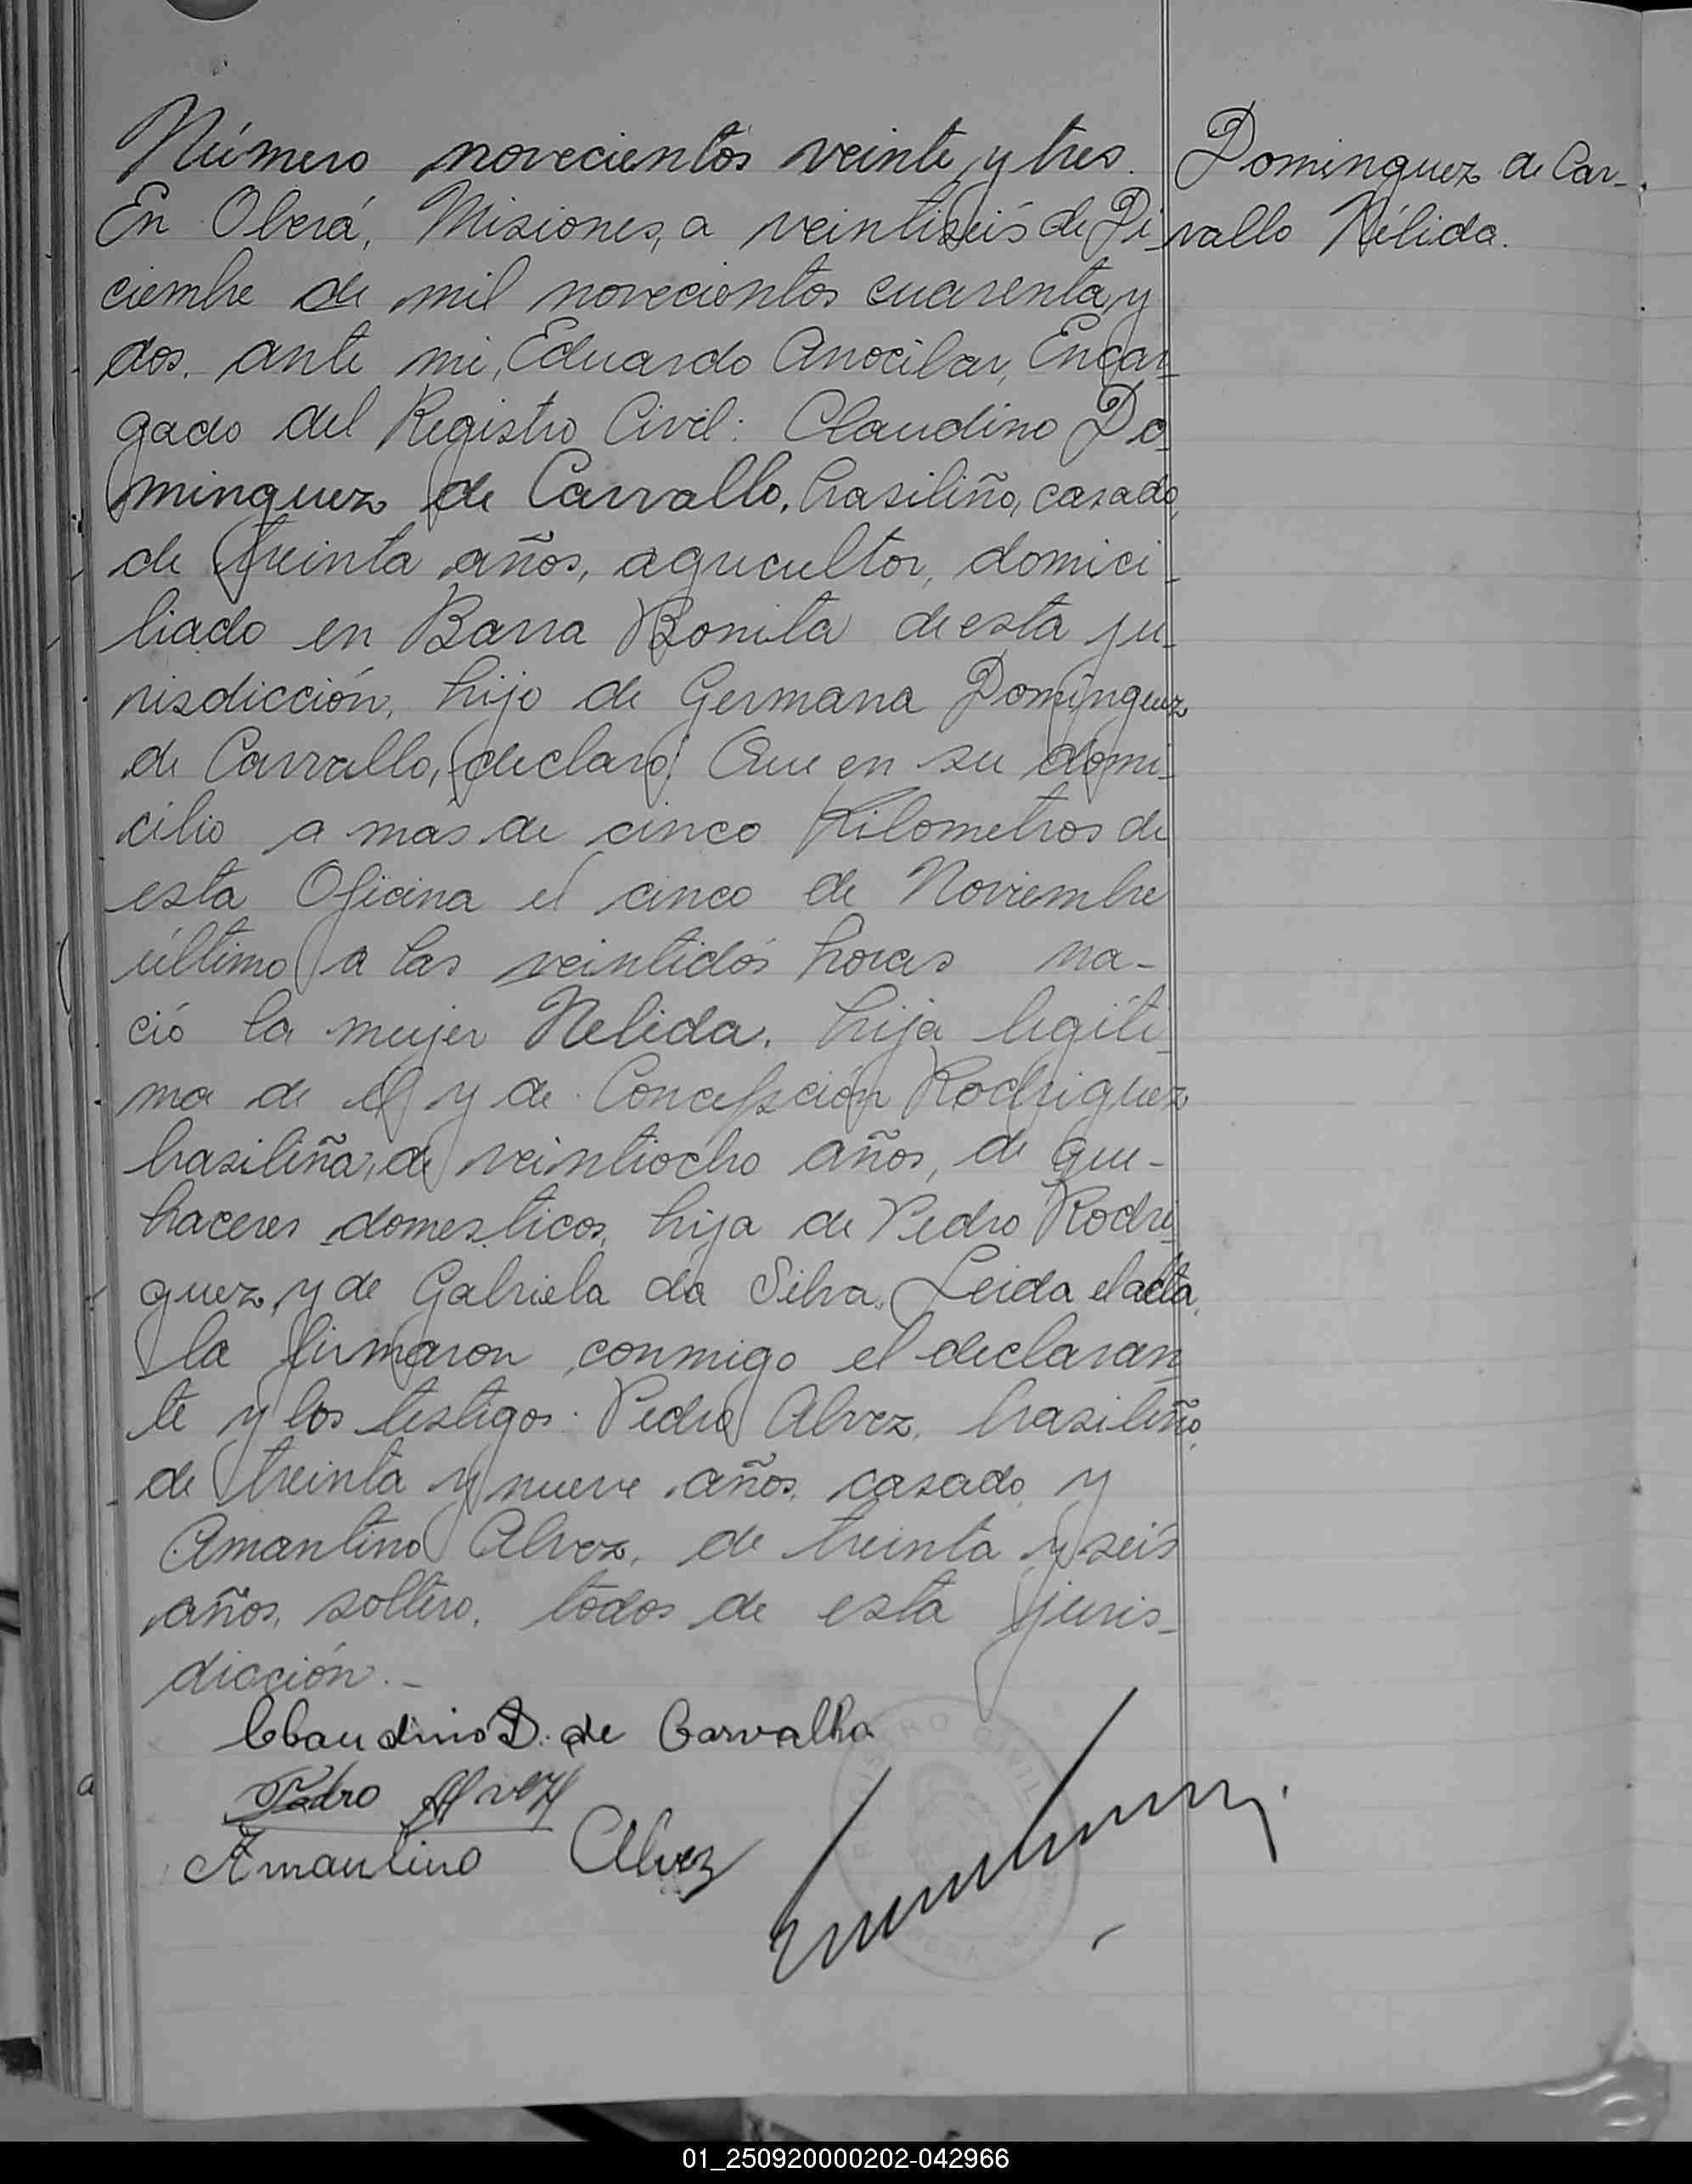 Número novecientos veinte y tres.
Dominguez de Car-
vallo Nélida.
En Oberá, Misiones, a veintiseis de Di
ciembre de mil novecientos cuarenta y
dos. ante mi, Eduardo Anocilar, Encar-
gado del Registro Civil: Claudino Do
minguez de Carvallo, brasiliño, casado,
de treinta años, agricultor, domici-
liado en Barra Bonita de esta ju-
risdicción, hijo de Germana Dominguez
de Carvallo, declaró: Que en su domi-
cilio a más de cinco Kilometros de
esta Oficina el cinco de Noviembre
último a las veintidós horas na-
ció la mujer Nelida. hija legíti-
ma de el y de Concepción Rodriguez
brasiliña, de veintiocho años, de que-
haceres domesticos, hija de Pedro Rodri-
guez, y de Gabriela da Silva. Leida el acta,
la firmaron conmigo el declaran-
te y los testigos: Pedro Alvez, brasiliño,
de treinta y nueve años, casado y
Amantino Alvez, de treinta y seis
años, soltero, todos de esta juris-
dicción.-
Claudino D. de Carvalho
Pedro Alvez
Amantino Alvez
REGISTRO CIVIL
OBERA
01_250920000202-042966